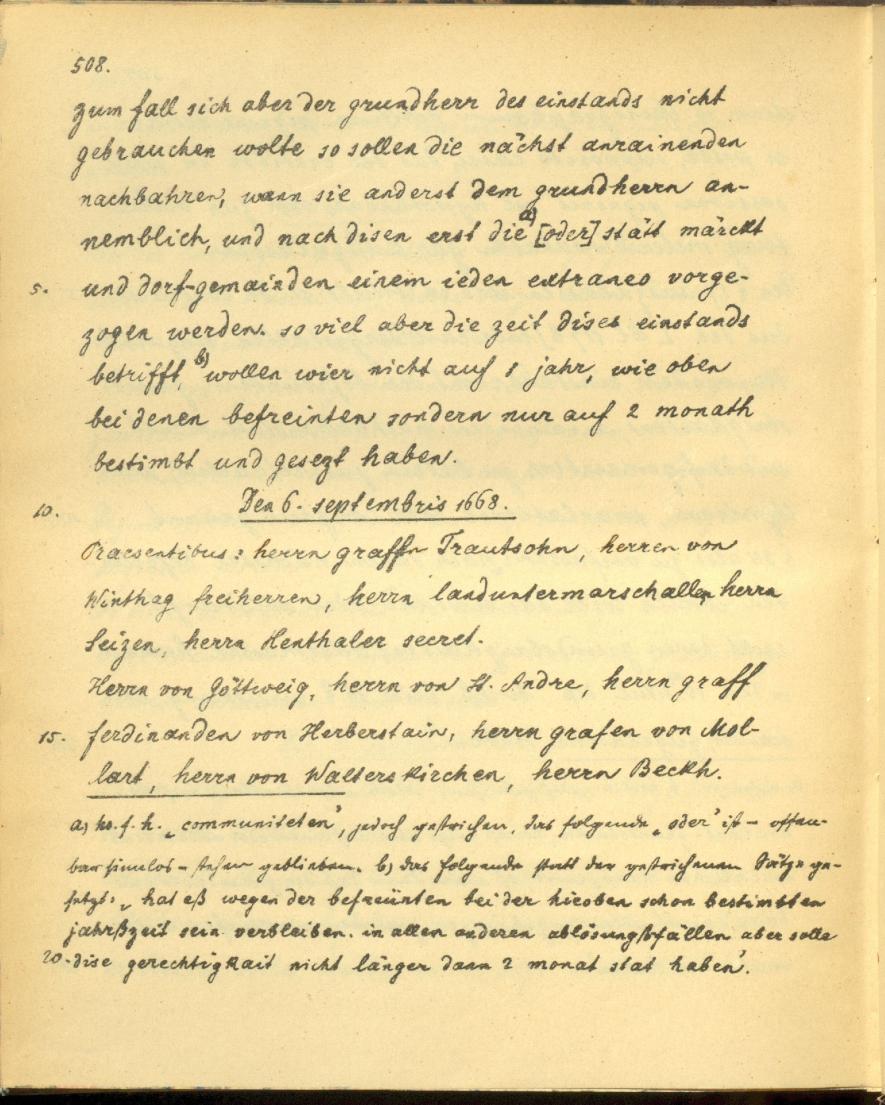 508.
zum fall sich aber der grundherr des einstands nicht
gebrauchen wolte so sollen die nächst anrainenden
nachbahren, wann sie anderst dem grundherrn an-
nemblich, und nach disen erst die a) [oder] stätt märckt
5. und dorf-gemainden einem ieden extraneo vorge-
zogen werden. so viel aber die zeit dises einstands
betrifft, b) wollen wier nicht auf 1 jahr, wie oben
bei denen befreinten sondern nur auf 2 monath
bestimbt und gesezt haben.
10. Den 6. septembris 1668.
Praesentibus: herrn graffen Trautsohn, herren von
Winthag freiherren, herrn landuntermarschallen herrn
Seizen, herrn Henthaler secret.
Herrn von Göttweig, herrn von St. Andre, herrn graff
15. ferdinanden von Herberstain, herrn grafen von Mol-
lart, herrn von Walterskirchen, herrn Beckh.
a) hs. f. h. „communiteten", jedoch gestrichen, das folgende „oder" ist – offen-
bar sinnlos – stehen geblieben. b) das folgende statt der gestrichenen Sätze ge-
setzt: „hat eß wegen der befreünten bei der hieoben schon bestimbten
jahrßzeit sein verbleiben. in allen anderen ablösungßfällen aber solle
20. dise gerechtigkait nicht länger dann 2 monat stat haben".